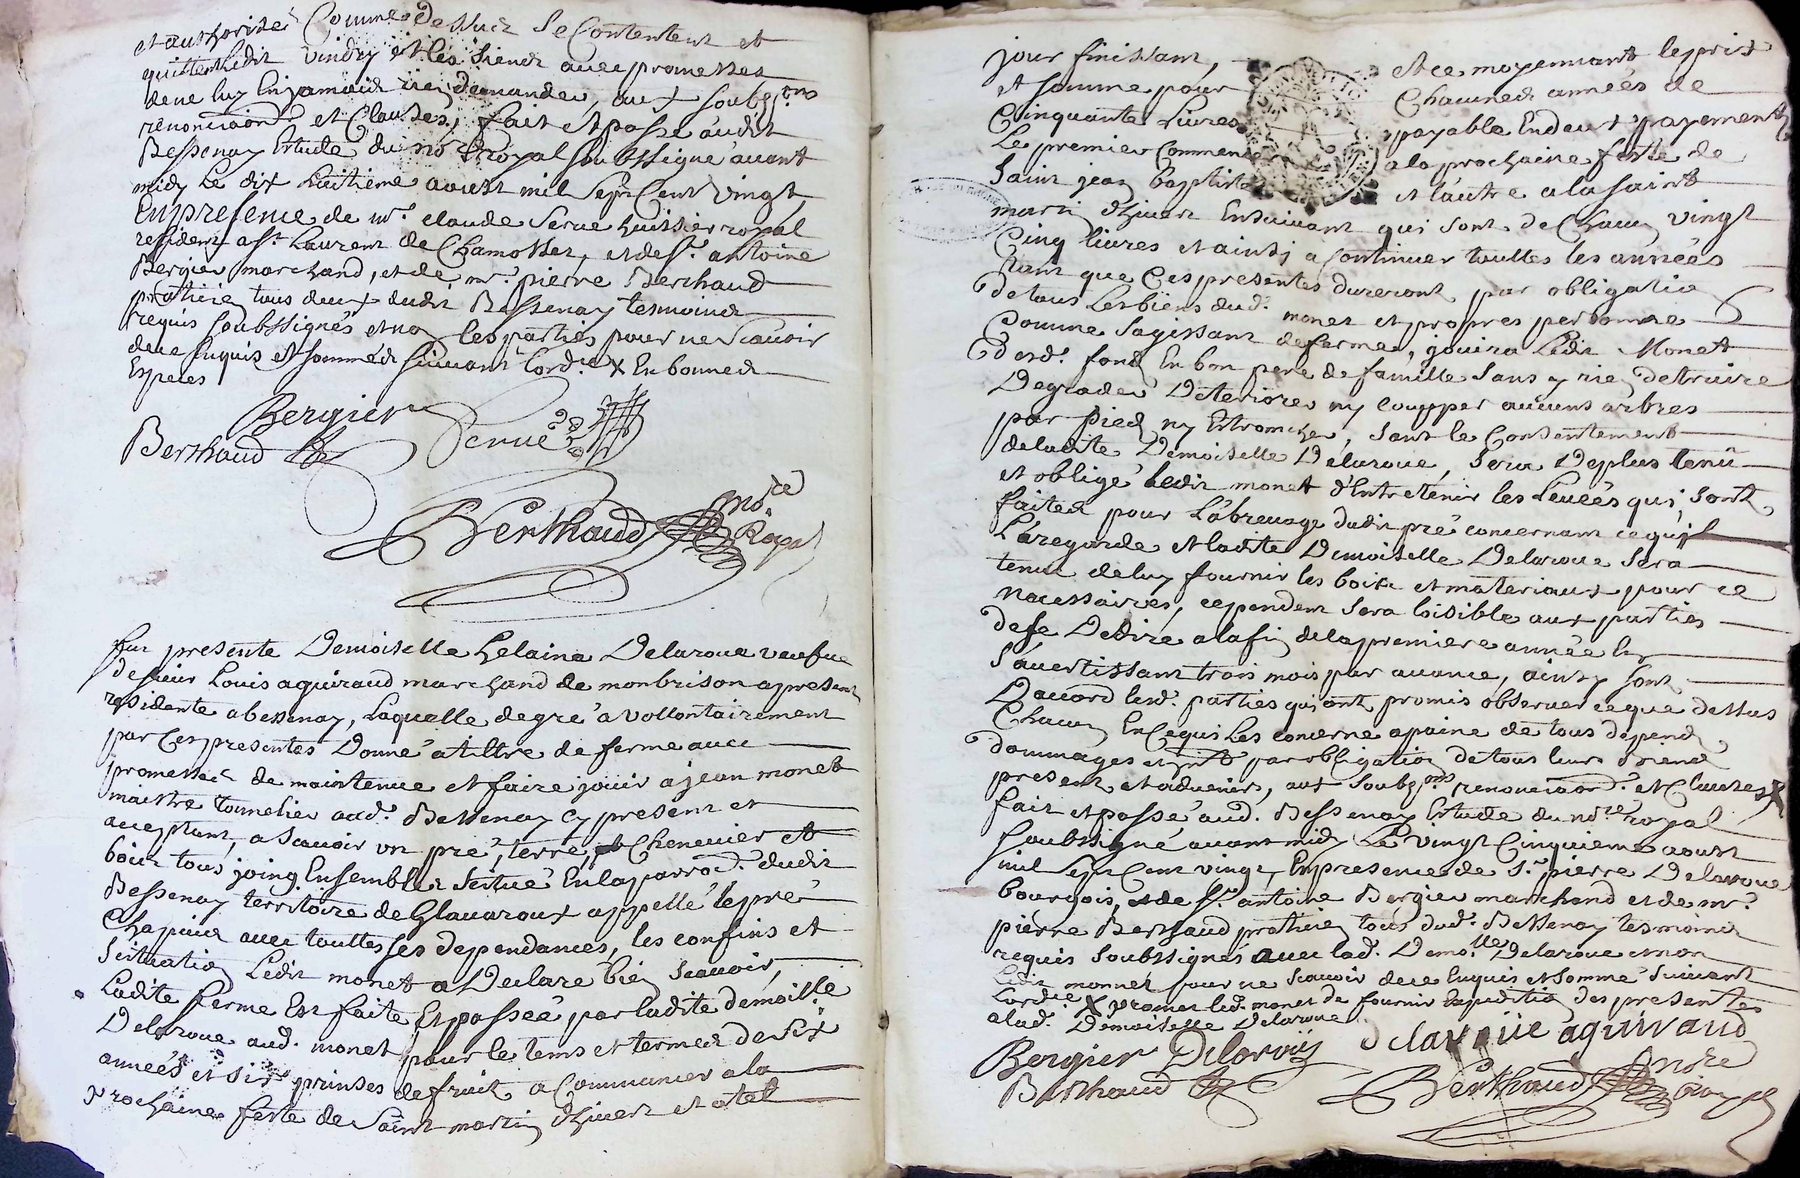 et authorizé Comme dessus Se Contentent et
quittent Ledit Vindry et les Siens avec promesses
de ne luy En jamais rien demander, aux soubz.ons
renonciaons et Clauses, fait et passé audit
Bessenay Estude du no.re Royal soubssigné avant
midy Le dix huitieme aoust mil Sept Cent vingt,
En presence de mr. claude Serve huissier royal
resident a St. Laurent de Chamosset, et de Sr. antoine
Bergier marchand, et de mr. pierre Berthaud
praticien tous deux dudit Bessenay tesmoins
requis soubssignés et non les parties pour ne Scavoir
de ce Enquis et sommés suivant Lord.ce X En bonnes
Especes
Bergier Serve
Berthaud
Berthaud no.re Royal
fut presente Demoiselle Helaine Delaroue veufve
de sieur Louis aguiraud marchand de monbrison apresent
residente a bessenay, Laquelle de gré a vollontairement
par Ces presentes Donné a tiltre de ferme avec
promesses de maintenue et faire jouir a jean monet
maistre tonnelier aud. Bessenay cy present et
acceptant, a Scavoir un pré, terre, Chenevier et
bois tous joing Ensembles Seitué En la parrod. dudit
Bessenay territoire de Glavaroux appellé le pré
Chapuis avec touttes ses dependances, les confins et
Seituation Ledit monet a Declaré bien Scavoir,
Ladite ferme Est faite Et passée par ladite demoiselle
Delaroue aud. monet pour le tems et termes de Six
années et six prinses de fruit a Commancer a la
prochaine feste de Saint martin d'hivert et a tel
jour finissant, et ce moyennant le prix
et somme pour Chacunes années de
Cinquante Livres payable En deux payements
Le premier Commence a la prochaine feste de
Saint jean baptiste et l'autre a la saint
martin d'hiver Ensuivant qui sont de Chacun vingt
Cinq livres et ainsy a Continuer touttes les années
tant que Ces presentes dureront par obligation
de tous Les biens dud. monet et propres personne
Comme Sagissant de ferme, jouira Ledit Monet
desd. fond En bon pere de famille Sans y rien detruire
Degrader Deteriorer ny Coupper aucuns arbres
par pied ny Estroncher, Sans le Consentement
de ladite Demoiselle Delaroue, Sera De plus tenu
et obligé Ledit monet d'Entretenir les Levées qui sont
faites pour L'abreuvage dudit pré concernant ce qui
Le regarde et ladite Demoiselle Delaroue Sera
tenue de luy fournir les bois et materiaux pour ce
necessaires, cependent Sera loisible aux parties
de se Dedire a la fin de la premiere année En
S'avertissant trois mois par avance, ainsy sont
D'accord lesd. parties qui ont promis observer ce que dessus
Chacun En ce qui Les concerne a paine de tous depend
dommages et par obligation de tous leurs Biens
present et advenirs, aux soubz.ons renonciaons. et Clauses X
fait et passé aud. Bessenay Estude du no.re royal
soubssigné avant midy Le vingt Cinquieme aoust
mil Sept Cent vingt, En presence de Sr. pierre Delaroue
bourgois, et de Sr. antoine Bergier marchand et de mr.
pierre Berthaud praticien tous dud. Bessenay tesmoins
requis soubssignés avec lad. Demo.lle Delaroue et non
Ledit monnet pour ne Scavoir de ce Enquis et sommé suivant
Lord.ce X promet led. monet de fournir Expedition des presentes
a lad. Demoiselle Delaroue.
Bergier Delaroue delaroüe aguiraud
Berthaud Berthaud no.re Royal